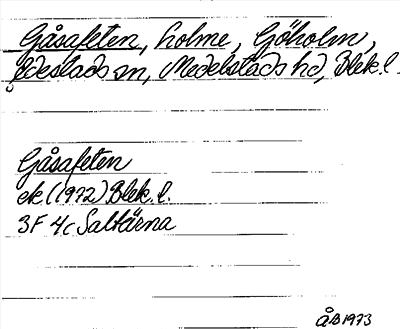 Gåsafeten, holme, Göholm,
Edestads sn, Medelstads hd, Blek. l.
Gåsafeten
ek. (1972) Blek. l.
3F 4c Saltärna
ÅB 1973